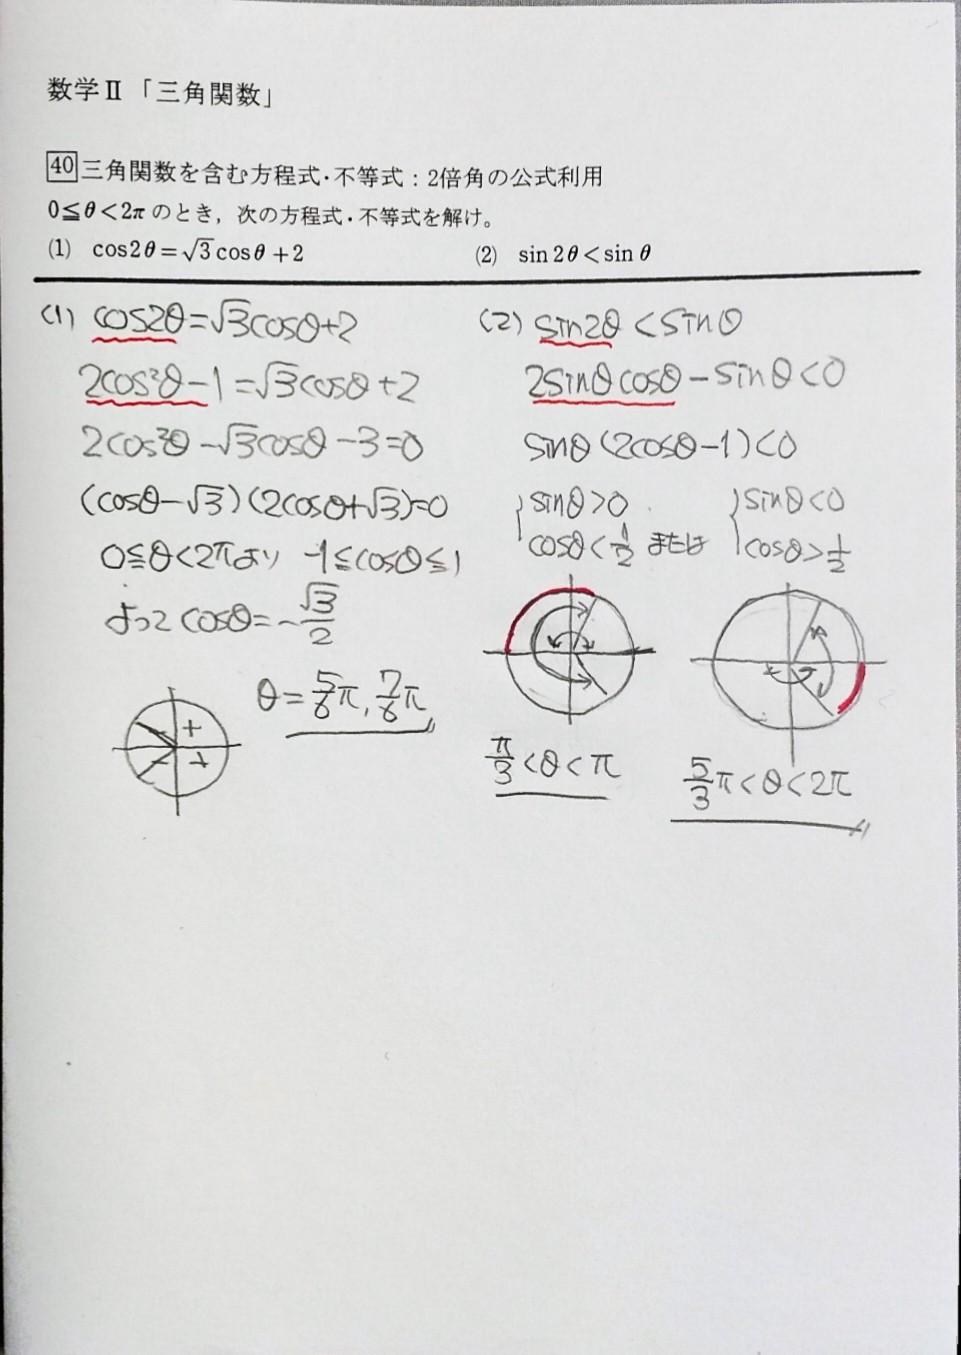 数学Ⅱ「三角関数」
40 三角関数を含む方程式・不等式：2倍角の公式利用
0≦θ<2π のとき，次の方程式・不等式を解け。
(1) cos2θ=√3cosθ+2 (2) sin2θ<sinθ
(1) cos2θ=√3cosθ+2
2cos²θ-1=√3cosθ+2
2cos²θ-√3cosθ-3=0
(cosθ-√3)(2cosθ+√3)=0
0≦θ<2πより -1≦cosθ≦1
よって cosθ=-√3/2
+
- +
-
θ=5/6π, 7/6π
(2) sin2θ<sinθ
2sinθcosθ-sinθ<0
sinθ(2cosθ-1)<0
{sinθ>0 {sinθ<0
cosθ<1/2 または cosθ>1/2
π/3<θ<π
5/3π<θ<2π